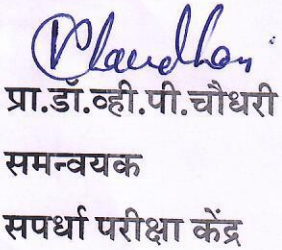 Chaudhari
प्रा.डॉ.व्ही.पी.चौधरी
समन्वयक
सपर्धा परीक्षा केंद्र